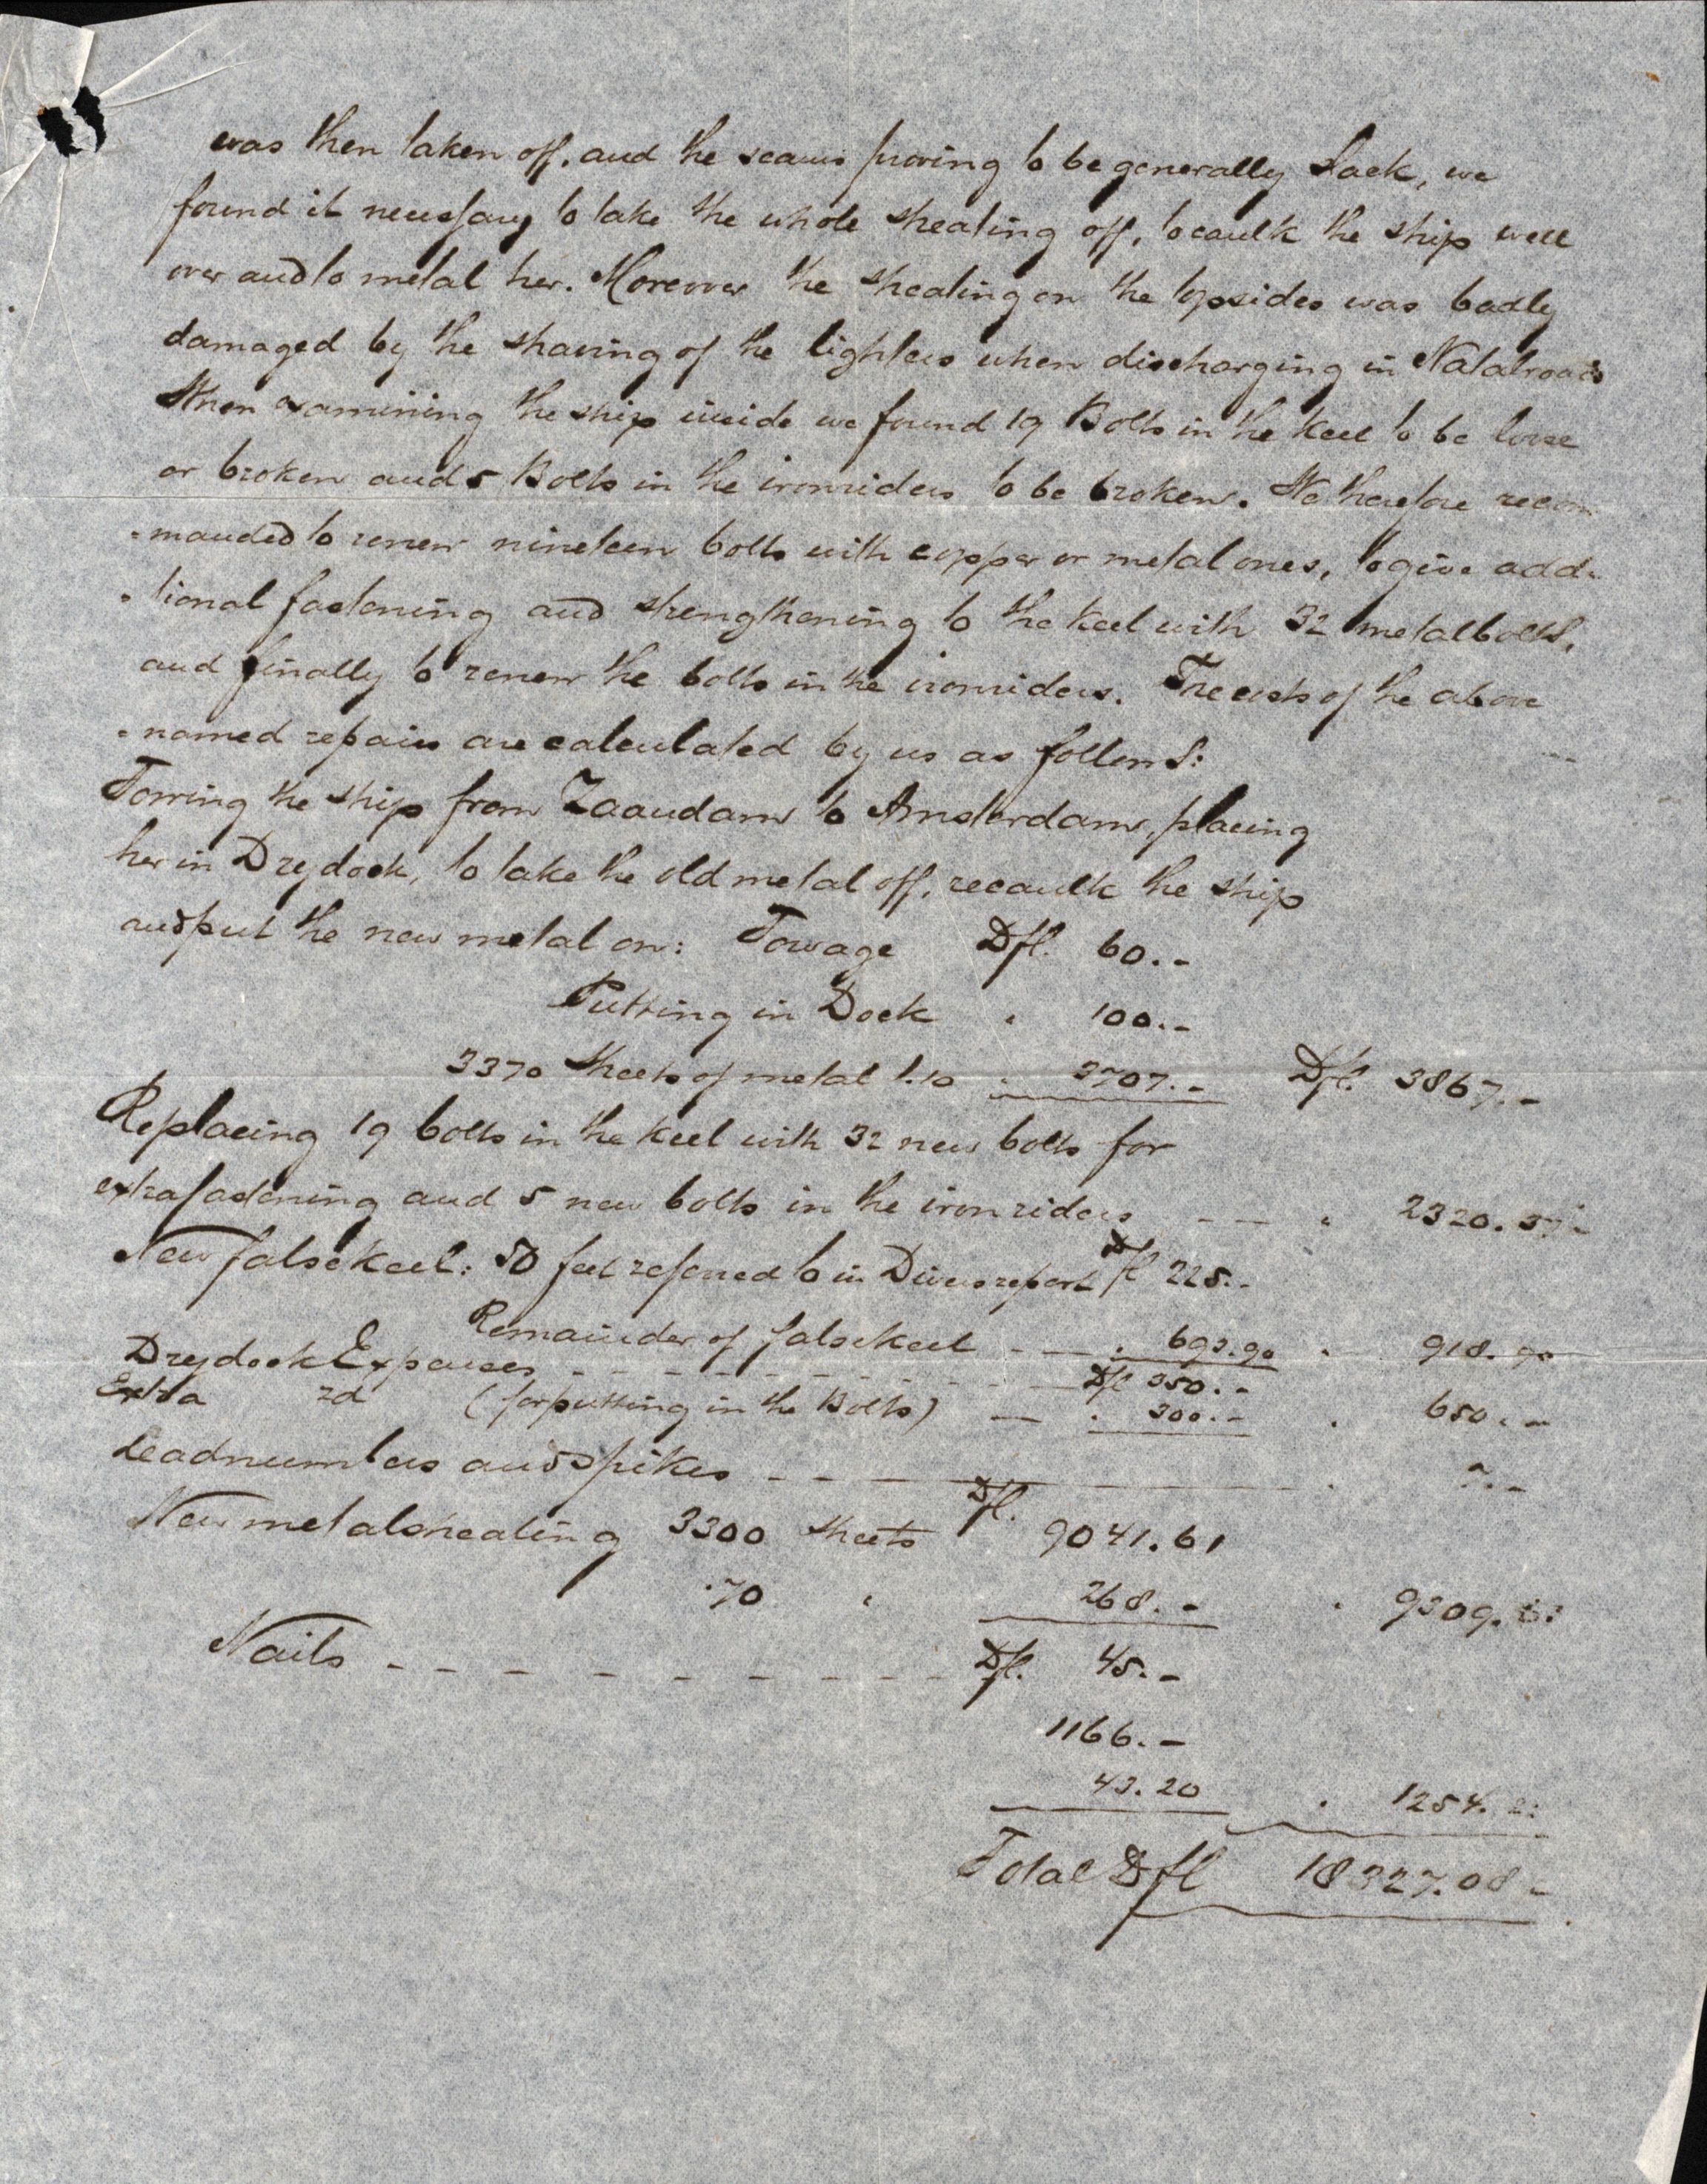 was then taken off, and the seams proving to be generally slack, we
found it necessary to take the whole sheating off, to caulk the ship well
over and to metal her. Moreover the sheating on the topsides was badly
damaged by the shaving of the lighters when discharging in Natalroads
When examining the ship inside we found 19 Bolts in the keel to be loose
or broken and 5 Bolts in the ironriders to be broken. We therefore recom
-manded to renew nineteen bolts with copper or metal ones, to give addi
-tional fastening and strengthening to the keel with 32 metalbolts,
and finally to renew the bolts in the ironriders. The costs of the above
-named repairs are calculated by us as follows:
Towing the ship from Zaandam to Amsterdam, placing
her in Drydock, to take the old metal off, recaulk the ship
and put the new metal on: Towage Dfl. 60.-
Putting in Dock " 100.-
3370 Sheets of metal 1.10 " 3707.- Dfl. 3867.-
Replacing 19 bolts in the keel with 32 new bolts for
extrafastening and 5 new bolts in the iron riders - - " 2320.37
New falsekeel: 50 feet refered to in Divers report Dfl 225.-
Remainder of falsekeel - - " 693.90 " 918.90
Drydock Expences - - - - - - - Dfl 350.-
Extra id (for putting in the Bolts) - " 300.- " 650.-
Leadnumbers and Spikes - - - " 7.-
New metalsheating 3300 Sheets Dfl. 9041.61
70 " 268.- " 9309.61
Nails - - - - - - - - - Dfl. 45.-
1166.-
43.20 " 1254.20
Total Dfl 18327.08